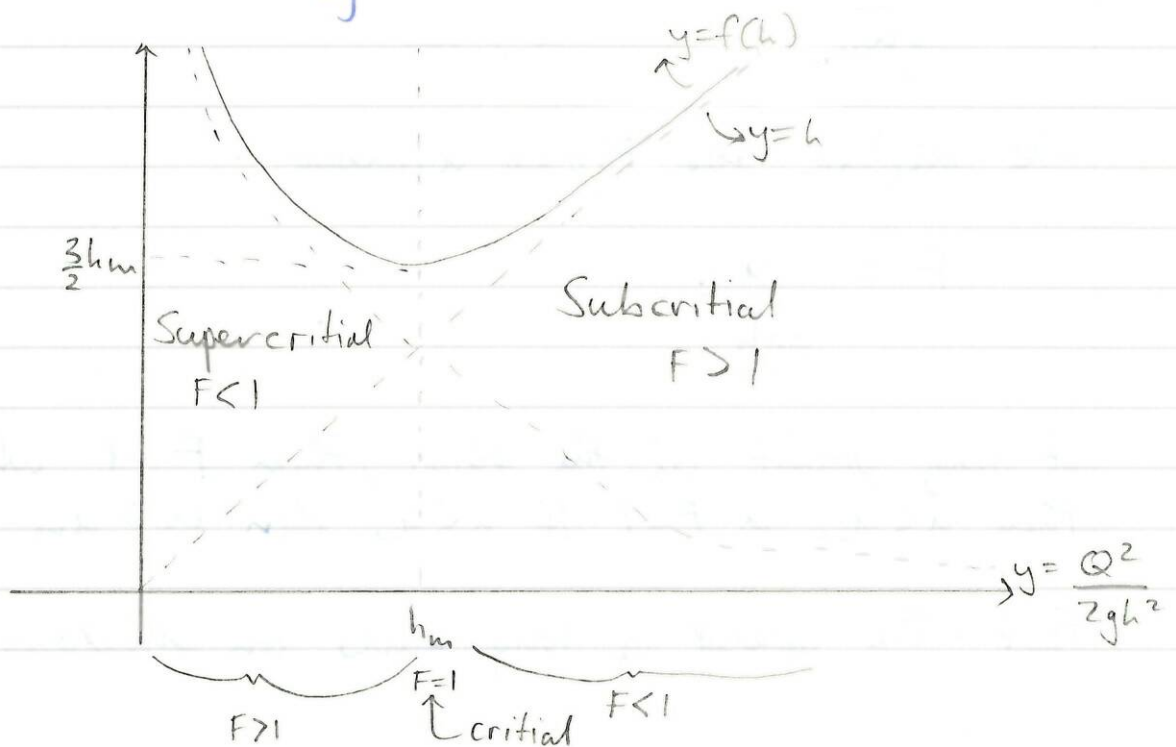 y=f(h)
y=h
3/2 hm
Supercritial
F<1
Subcritial
F>1
y= Q²/2gh²
hm
F=1
F>1
critial
F<1